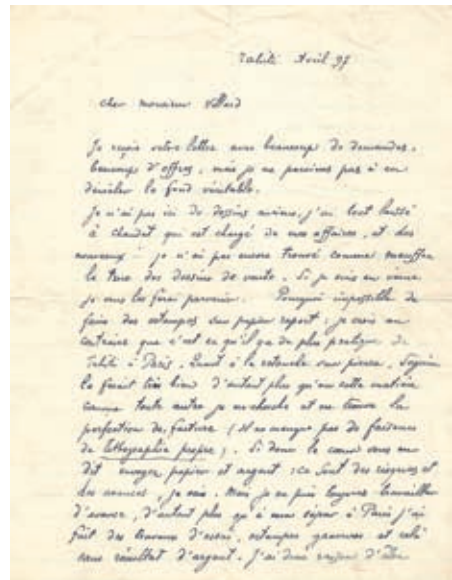 Tahiti Avril 97
cher monsieur Vollard
Je reçois votre lettre avec beaucoup de demandes,
beaucoup d'offres, mais je ne parviens pas à en
démêler le fond véritable.
Je n'ai pas ici de dessins même, j'ai tout laissé
à Chaudet qui est chargé de mes affaires, et des
nouveaux - je n'ai pas encore trouvé comme
le truc des dessins de vente. Si je suis en veine
je vous les ferai parvenir. Pourquoi impossible de
faire des estampes sur papier report : je crois au
contraire que c'est ce qu'il y a de plus pratique de
Tahiti à Paris. Quant à la retouche sur pierre,
le ferait très bien d'autant plus qu'en cette matière
comme toute autre je recherche et ne trouve la
perfection de facture (il ne manque pas de faiseurs
de lithographie propre). Si donc le cœur vous en
dit envoyez papier et argent : ce sont des risques et
des avances, je sais. Mais je ne puis toujours travailler
d'avance, d'autant plus qu'à mon séjour à Paris j'ai
fait des travaux d'essai, estampes gravures et cela
sans résultat d'argent. J'ai donc raison d'être